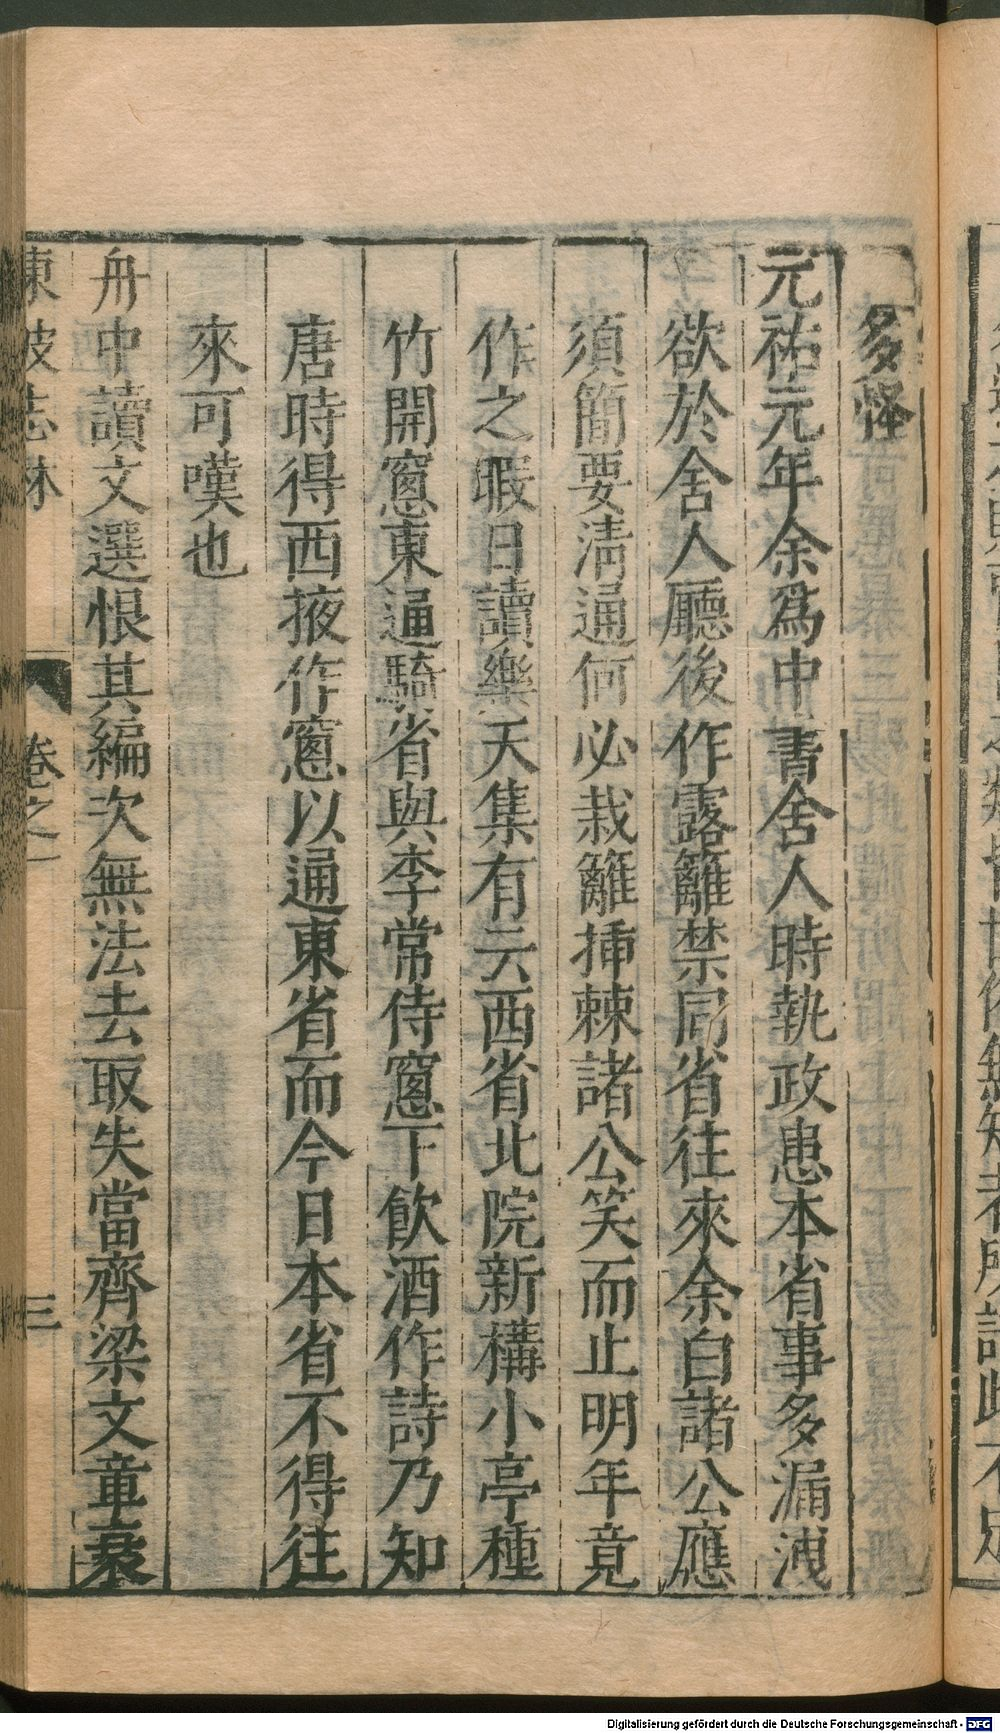 多怪
元祐元年余為中書舍人時執政患本省事多漏洩
欲於舍人廳後作露籬禁同省往來余白諸公應
須簡要淸通何必栽籬揷棘諸公笑而止明年竟
作之暇日讀樂天集有云西省北院新構小亭種
竹開窗東通騎省與李常侍窗下飮酒作詩乃知
唐時得西掖作窗以通東省而今日本省不得往
來可嘆也
舟中讀文選恨其編次無法去取失當齊梁文章衰
東坡志林 卷之一 三
Digitalisierung gefördert durch die Deutsche Forschungsgemeinschaft - DFG